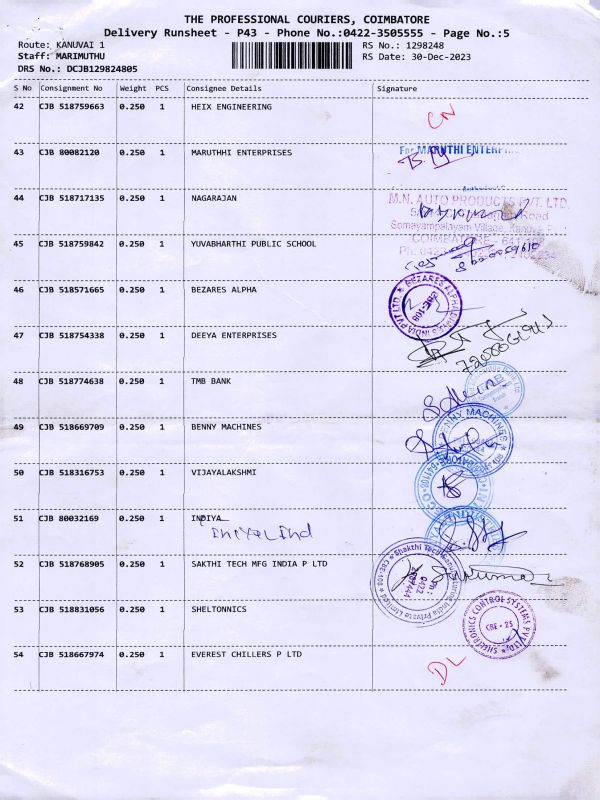 THE PROFESSIONAL COURIERS, COIMBATORE
Delivery Runsheet - P43 - Phone No.:0422-3505555 - Page No.:5
Route: KANUVAI 1 RS No.: 1298248
Staff: MARIMUTHU RS Date: 30-Dec-2023
DRS No.: DCJB129824805
S No Consignment No Weight PCS Consignee Details Signature
42 CJB 518759663 0.250 1 HEIX ENGINEERING CN
43 CJB 80082120 0.250 1 MARUTHHI ENTERPRISES For MARUTHI
44 CJB 518717135 0.250 1 NAGARAJAN M.N. AUTO PRODUCTS PVT. LTD.
Road
Somayampalayam Village,
45 CJB 518759842 0.250 1 YUVABHARTHI PUBLIC SCHOOL COIMBATORE
46 CJB 518571665 0.250 1 BEZARES ALPHA CBE-108
47 CJB 518754338 0.250 1 DEEYA ENTERPRISES
48 CJB 518774638 0.250 1 TMB BANK
49 CJB 518669709 0.250 1 BENNY MACHINES BENNY MACHINES
50 CJB 518316753 0.250 1 VIJAYALAKSHMI
51 CJB 80032169 0.250 1 INDIYA
iniya Ind
52 CJB 518768905 0.250 1 SAKTHI TECH MFG INDIA P LTD
53 CJB 518831056 0.250 1 SHELTONNICS CBE - 25
54 CJB 518667974 0.250 1 EVEREST CHILLERS P LTD DL